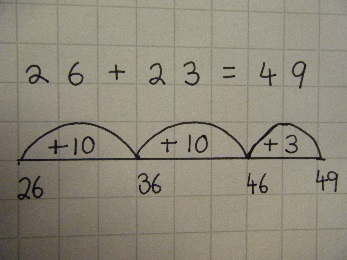 26 + 23 = 49
+10 +10 +3
26 36 46 49